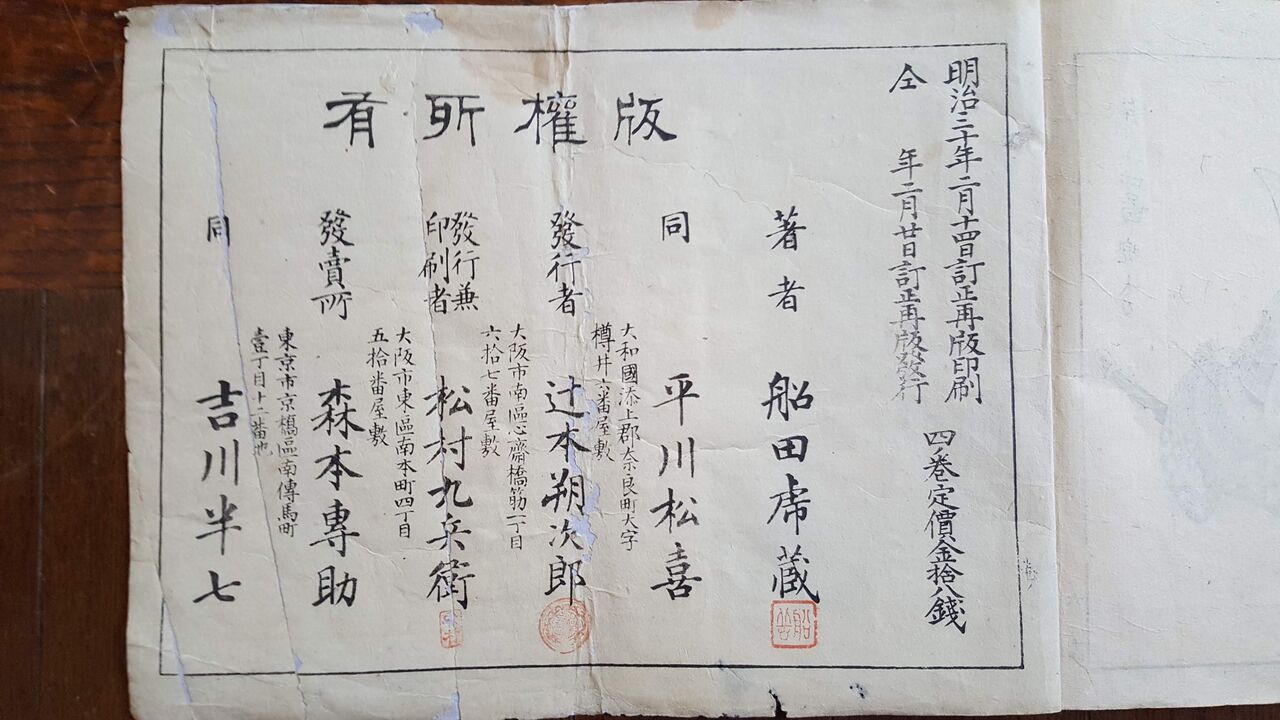 明治三十年二月十四日訂正再版印刷
仝　年二月廿日訂正再版發行
四ノ巻定價金拾八錢
版權所有
著者　船田席蔵
同　平川松喜
大和國添上郡奈良町大字
樽井六番屋敷
發行者　辻本朔次郎
大阪市南區心齋橋筋一丁目
六拾七番屋敷
發行兼
印刷者　松村九兵衛
大阪市東區南本町四丁目
五拾番屋敷
發賣所　森本專助
東京市京橋區南傳馬町
壹丁目十二番地
同　吉川半七